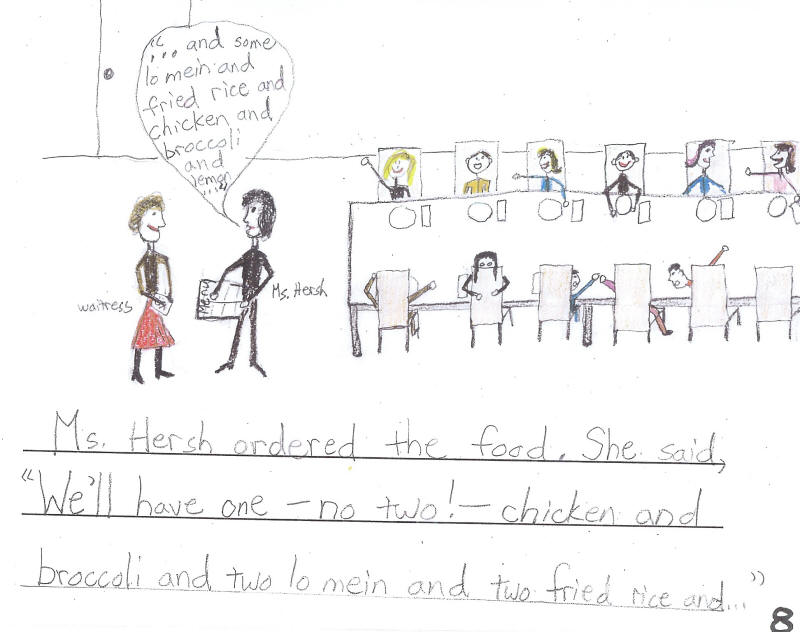 "...and some
lo mein and
fried rice and
chicken and
broccoli
and
lemon
..."
waitress
Menu
Ms. Hersh
Ms. Hersh ordered the food. She said,
"We'll have one – no two! – chicken and
broccoli and two lo mein and two fried rice and..."
8